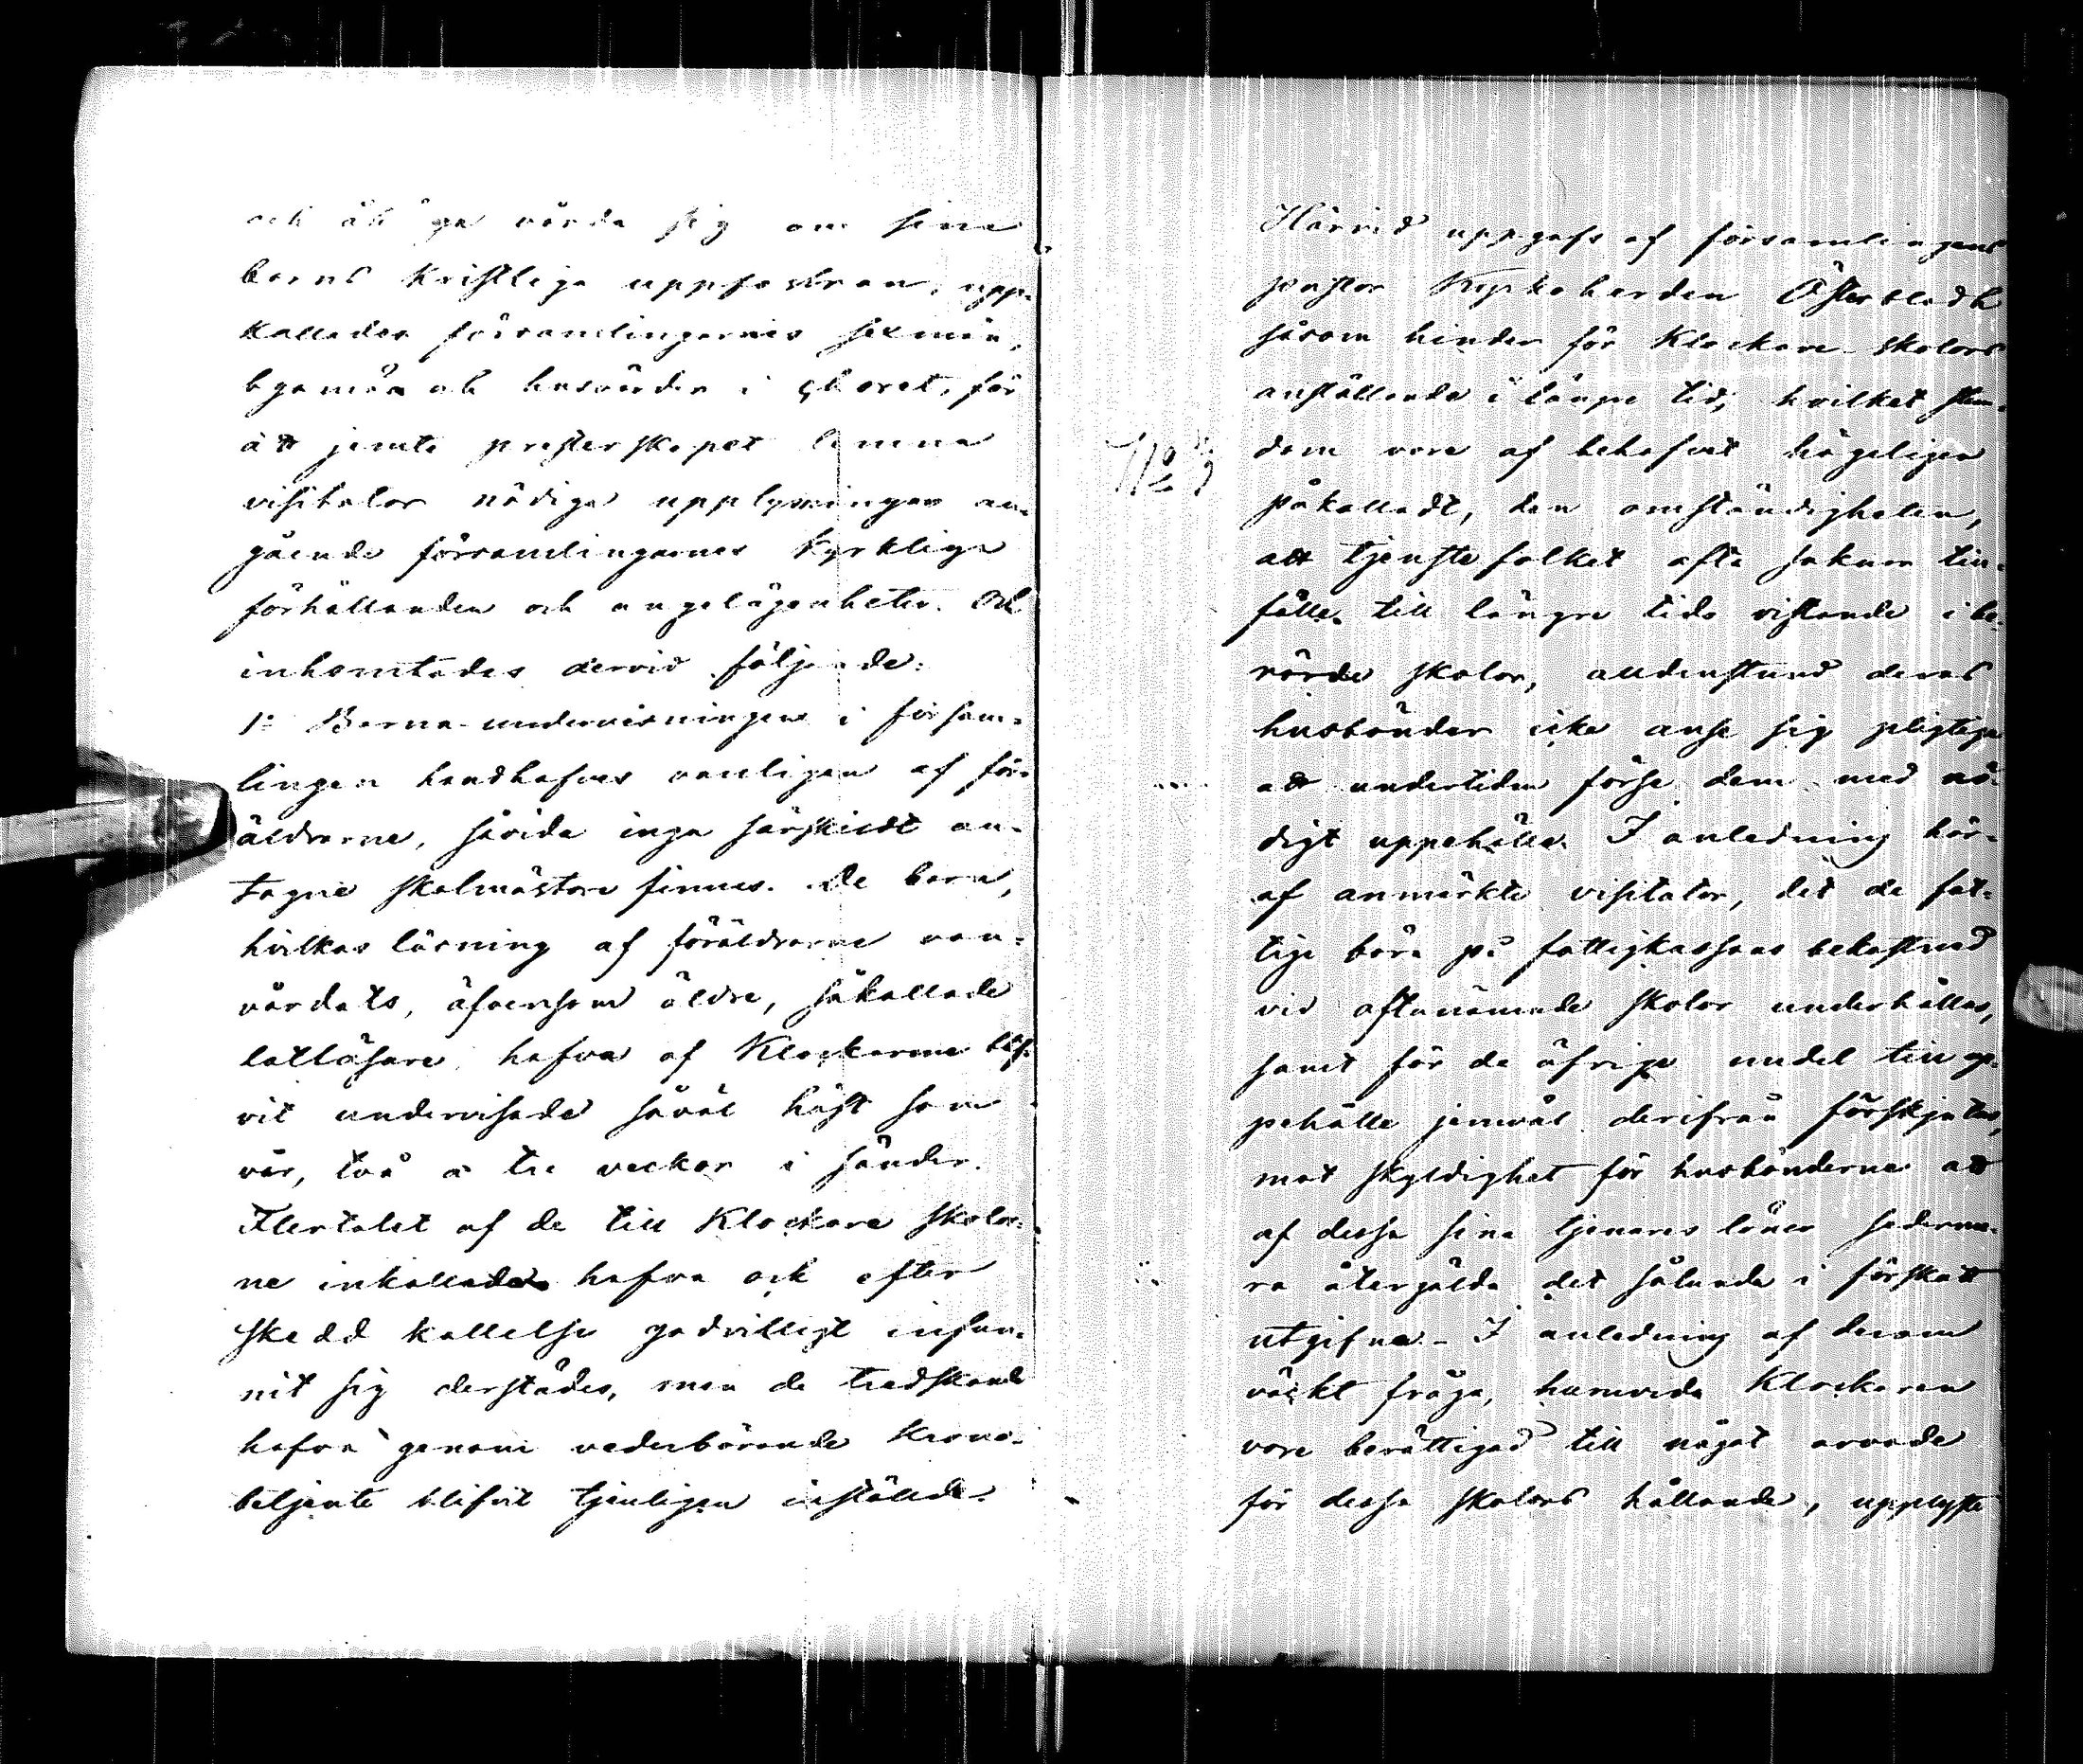 och åh ga vårda sig om sina
barns kristliga uppfostran, upp-
kallades församlingarnes sexmän,
byamän och husvärdar i choret, för
att jemte presterskapet lemna
visitator nödiga upplysningar an-
gående församlingarnes kyrkliga
förhållanden och angelägenheter. Och
inhemtades dervid följande:
1:o Barna-undervisningen i försam-
lingen handhafves vanligen af för-
äldrarne, såvida inga särskildt an-
tagne skolmästare finnes. De barn,
hvilkas läsning af föräldrarne van-
vårdats, äfvensom äldre, såkallade
lattläsare, hafva af Klockarne blif-
vit undervisade såväl höst som
vår, två a tre veckor i sänder.
Flertalet af de till Klockare skolor-
ne inkallade hafva ock efter
skedd kallelse godvilligt infun-
nit sig derstädes, men de tredskande
hafva genom vederbörande krono-
betjente blifvit tjenligen inställde.
Härvid uppgafs af församlingens
pastor Kyrkoherden Österbladh
såsom hinder för Klockare-skolors
anställande i längre tid, hvilket stun-
dom vore af behofvet högeligen
påkalladt, den omständigheten,
att tjenstefolket ofta saknar till-
fälle till längre tids vistande i be-
rörde skolor, alldenstund deras
husbönder icke anse sig pligtige
att undertiden förse dem med nö-
digt uppehälle. I anledning här-
af anmärkte visitator, det de fat-
tige böra på fattigkassans bekostnad
vid oftanämnde skolor underhållas,
samt för de öfrige medel till up-
pehälle jemväl derifrån förskjutas,
mot skyldighet för husbönderne att
af dessa sina tjenares löner sederme-
ra återgälda det sålunda i förskott
utgifna. - I anledning af derom
väckt fråga, huruvida Klockaren
vore berättigad till något arvode
för dessa skolors hållande, upplyste